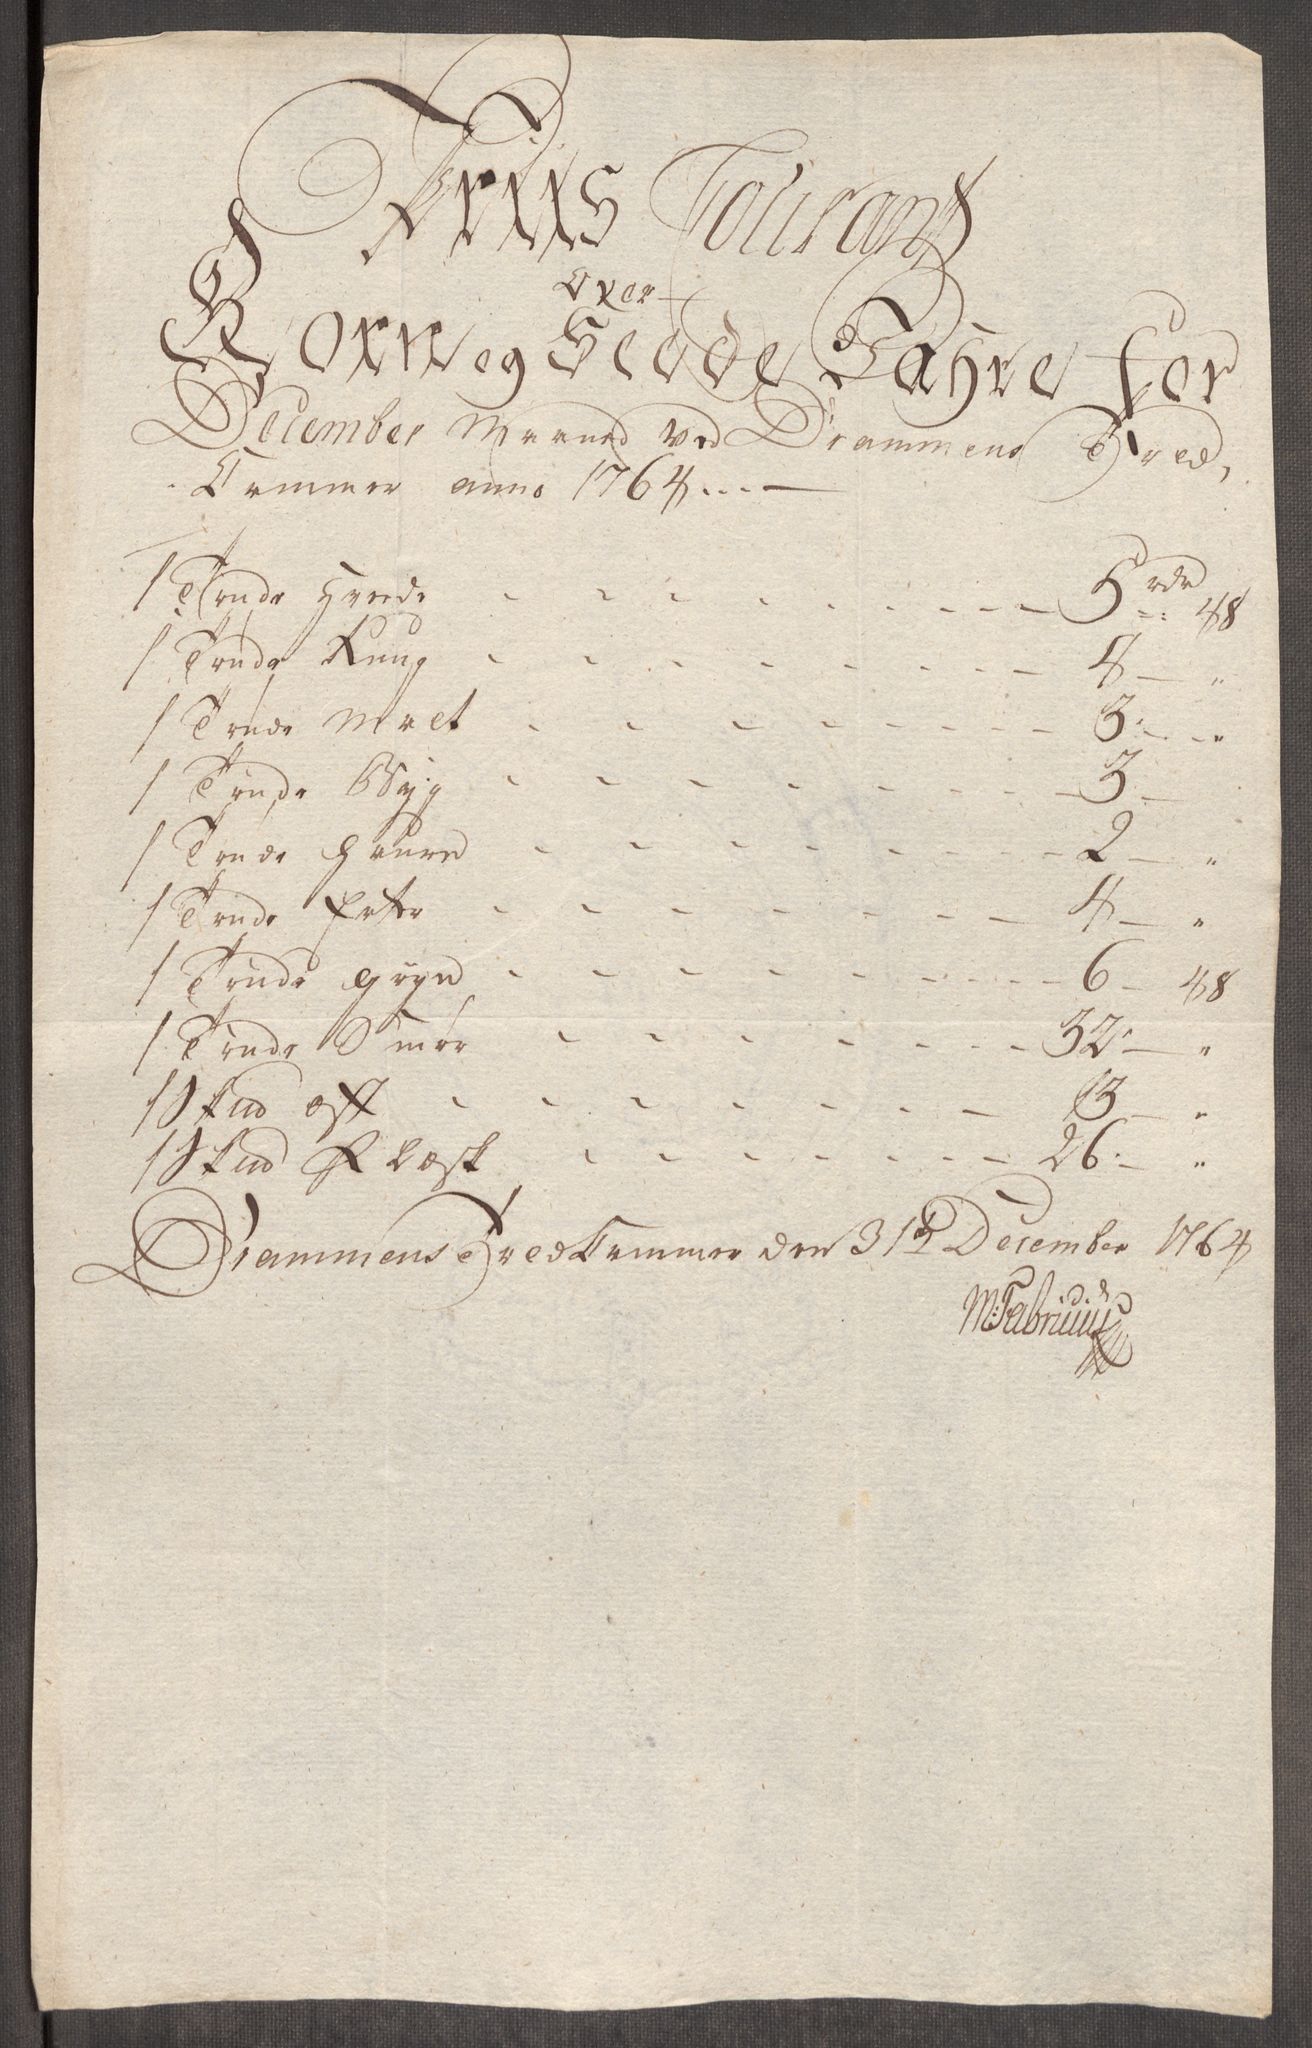 Priis Courant
over
Korn og Fede Vahre for
December Maaned ved Drammens Vred,
Cammer anno 1764....
1 Tønde Hvede - - - 5 rdr 48
1 Tønde Rung - - - 4 — "
1 Tønde Malt - - - 3 — "
1 Tønde Byg - - - 3 —
1 Tønde Haure - - - 2 — "
1 Tønde Erter - - - 4 — "
1 Tønde Gryn - - - 6 — 48
1 Tønde Smør - - - 32 — "
1 Skud ost - - - 13 — "
1 Skud Flæsk - - - 26 — "
Drammens Vred Cammer den 31te December 1764
M: Fabritius